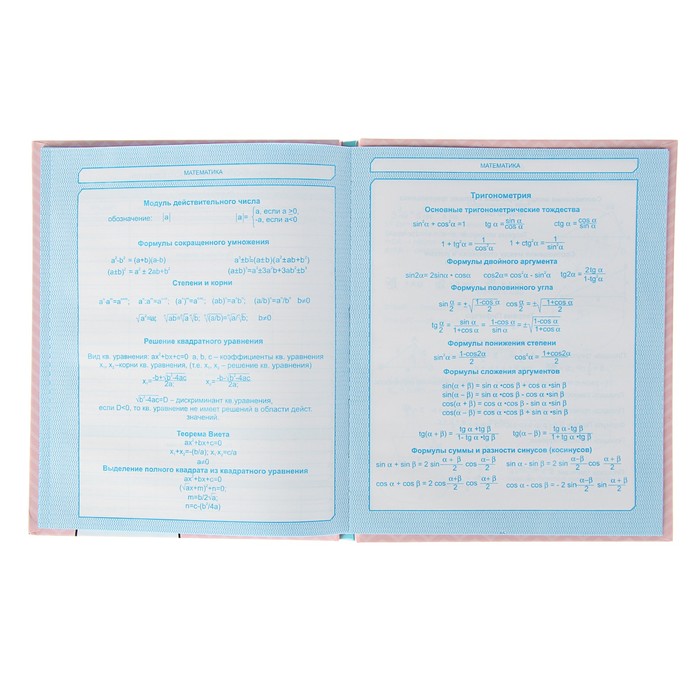 МАТЕМАТИКА
Модуль действительного числа
обозначение: |a| |a|= {a, если a ≥0,
-a, если a<0
Формулы сокращенного умножения
a²-b² = (a+b)(a-b) a³±b³=(a±b)(a²±ab+b²)
(a±b)² = a² ± 2ab+b² (a±b)³=a³±3a²b+3ab²±b³
Степени и корни
b≠0
b≠0
Решение квадратного уравнения
Вид кв. уравнения: ax²+bx+c=0 a, b, c – коэффициенты кв. уравнения
x₁, x₂–корни кв. уравнения, (т.е. x₁, x₂ – решение уравнения)
x₁=(-b+√b²-4ac)/2a; x₂=(-b-√b²-4ac)/2a;
√b²-4ac=D – дискриминант кв.уравнения,
если D<0, то кв. уравнение не имеет решений в области дейст.
значений.
Теорема Виета
ax²+bx+c=0
x₁+x₂=-(b/a); x₁x₂=c/a
a≠0
Выделение полного квадрата из квадратного уравнения
ax²+bx+c=0
(√ax+m)²+n=0:
m=b/2√a;
n=c-(b²/4a)
МАТЕМАТИКА
Тригонометрия
Основные тригонометрические тождества
sin²α + cos²α =1 tg α = sin α/cos α ctg α = cos α/sin α
1 + tg²α = 1/cos²α 1 + ctg²α = 1/sin²α
Формулы двойного аргумента
sin2α= 2sinα • cosα cos2α= cos²α - sin²α tg2α = 2tg α/1-tg²α
Формулы половинного угла
sin α/2 = ±√(1-cos α/2) cos α/2 = ±√(1+cos α/2)
tg α/2 = sin α/1+cos α = 1-cos α/sin α = ±√(1-cos α/1+cos α)
Формулы понижения степени
sin²α = 1-cos2α/2 cos²α = 1+cos2α/2
Формулы сложения аргументов
sin(α + β) = sin α •cos β + cos α •sin β
sin(α – β) = sin α •cos β - cos α •sin β
cos(α + β) = cos α •cos β - sin α •sin β
cos(α – β) = cos α •cos β + sin α •sin β
tg(α + β) = tg α +tg β/1- tg α •tg β tg(α – β) = tg α -tg β/1+ tg α •tg β
Формулы суммы и разности синусов (косинусов)
sin α + sin β = 2 sin α+β/2 cos α-β/2 sin α - sin β = 2 sin α–β/2 cos α+β/2
cos α + cos β = 2 cos α+β/2 cos α-β/2 cos α - cos β = - 2 sin α–β/2 sin α+β/2